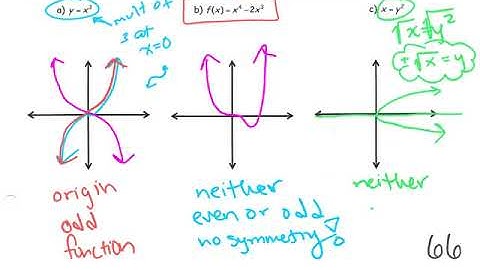 a) y = x³
mult of
3 at
x=0
b) f(x) = x⁴ - 2x³
c) x = y²
√x = √y²
±√x = y
origin
odd
function
neither
even or odd
no symmetry
neither
66